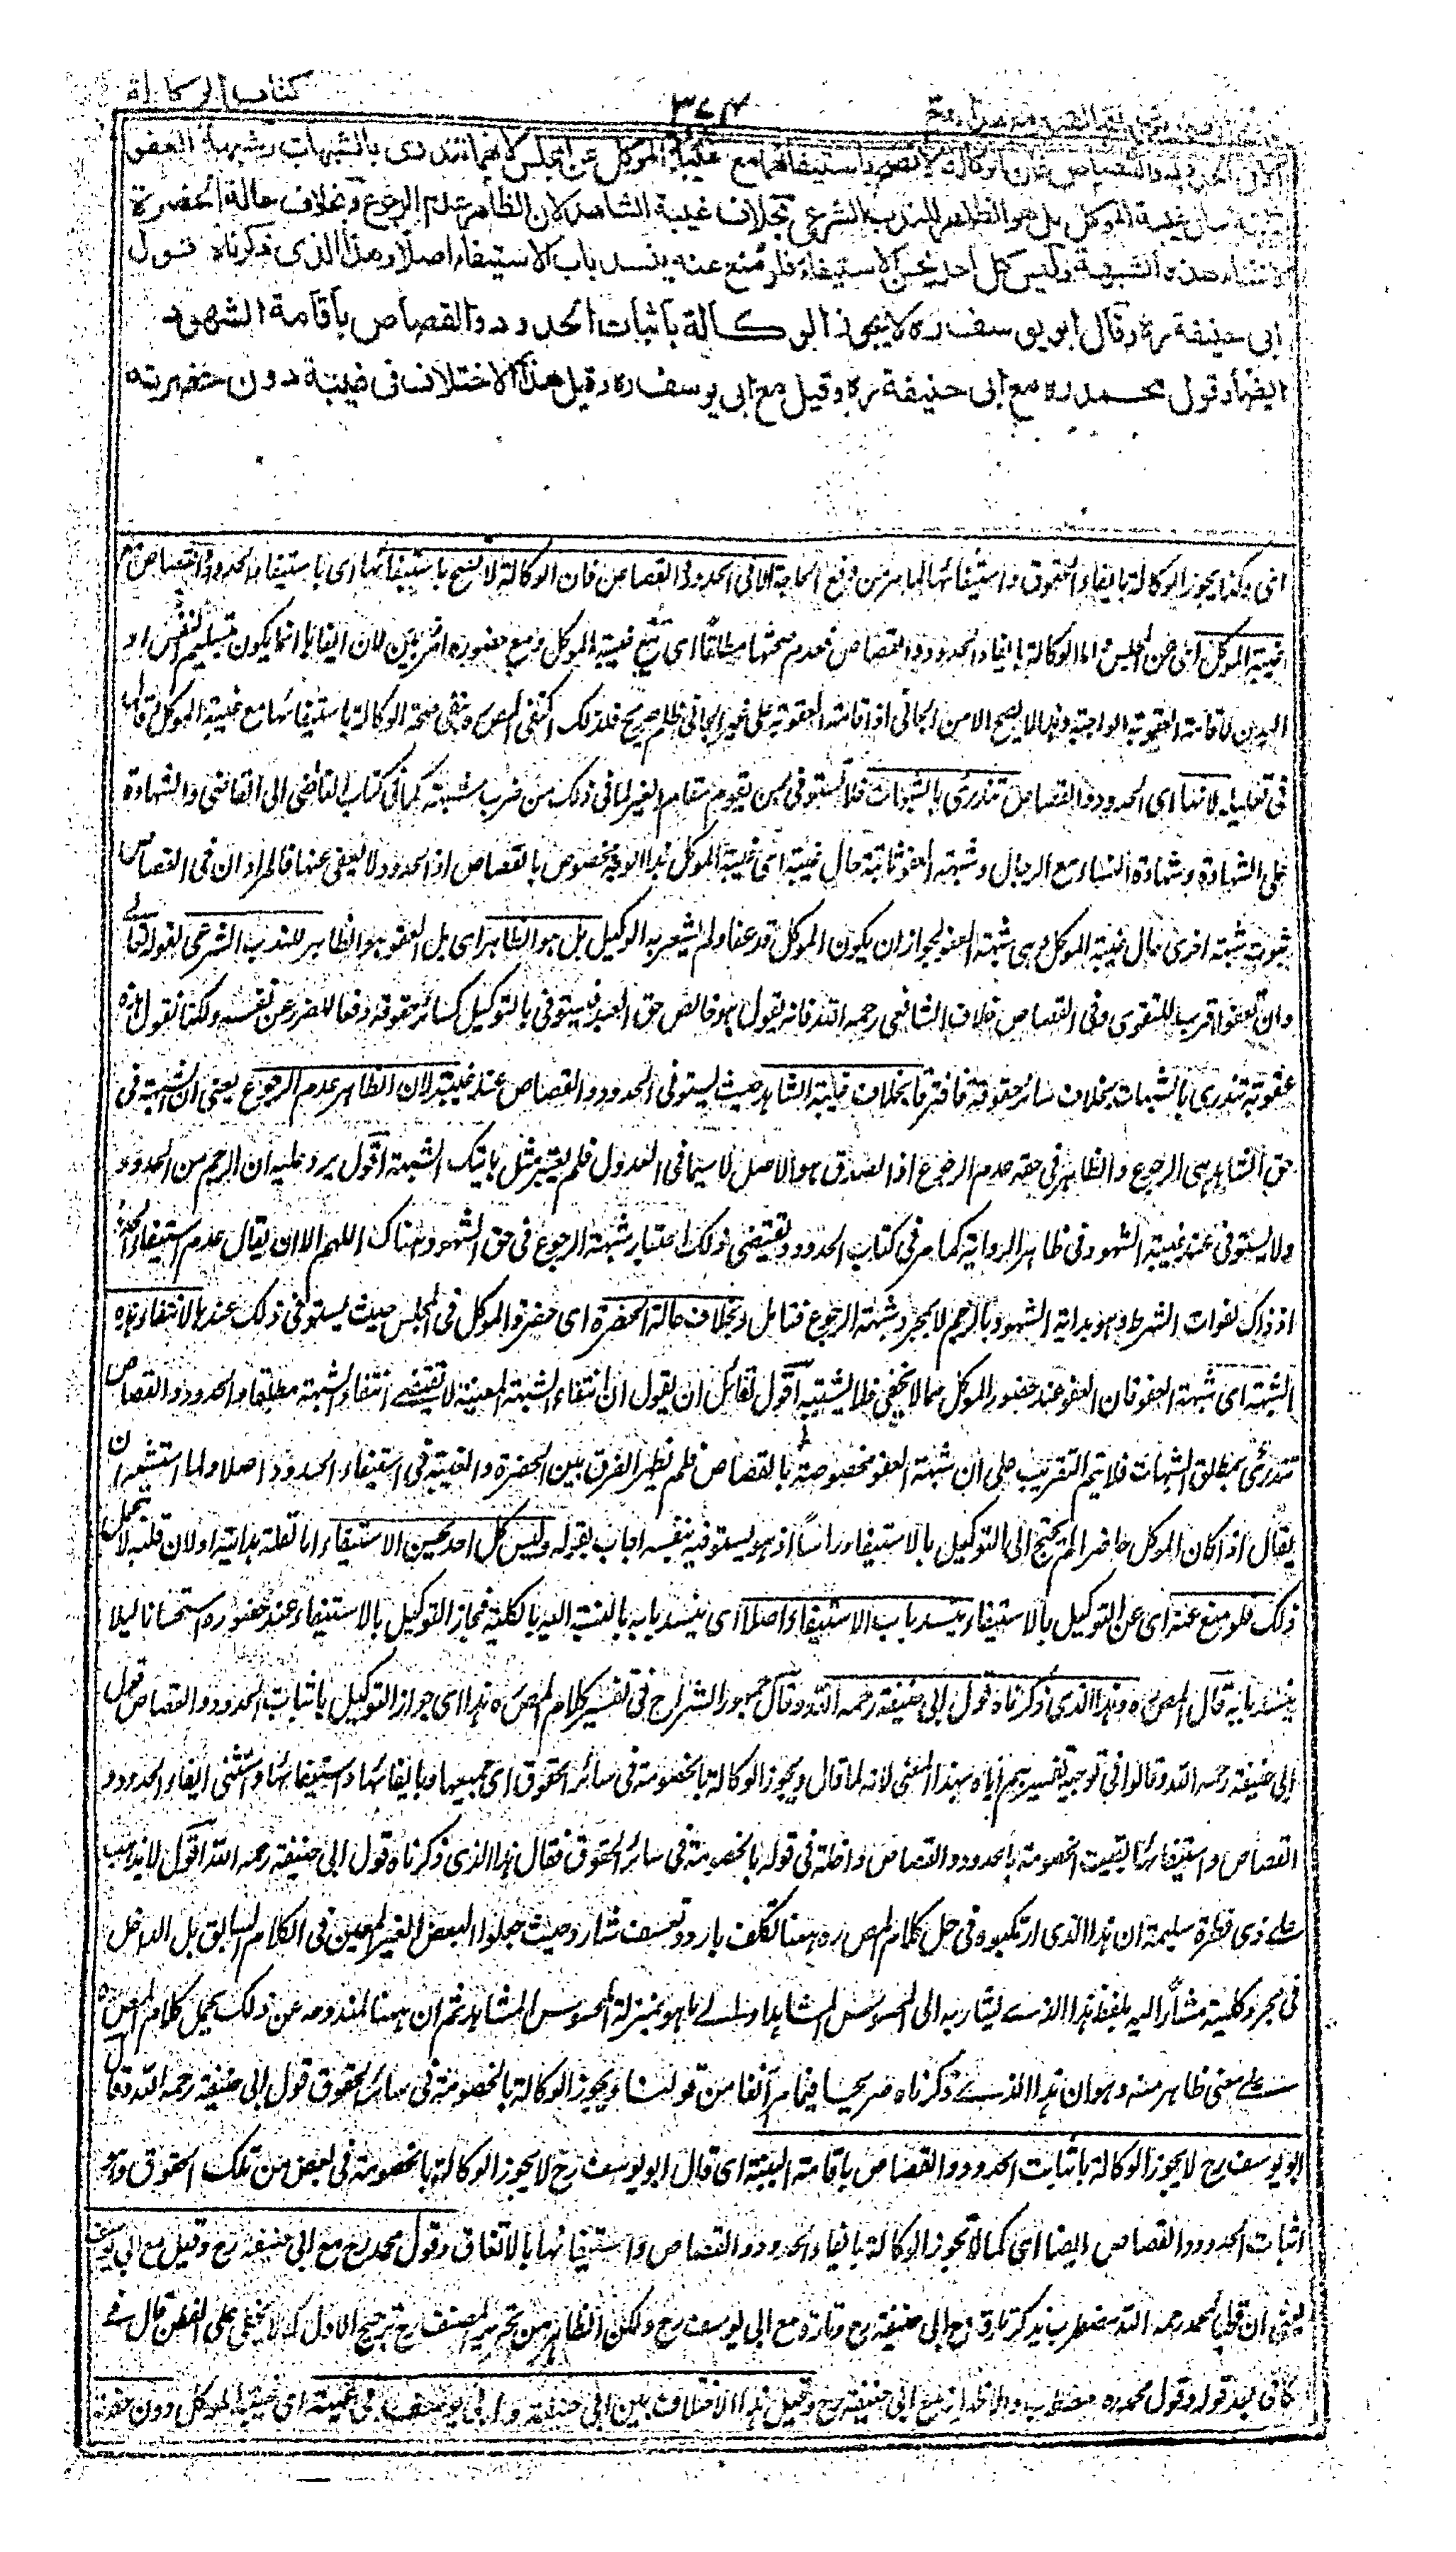 كتاب الوكالة
٣٦٤
الا فى الحدود والقصاص فان الوكالة لا تصح باستيفائهما مع غيبة الموكل عن المجلس لانهما تندرى بالشبهات وشبهة العفو
ثابتة حال غيبة الموكل بل هو الظاهر للندب الشرعى بخلاف غيبة الشاهد لان الظاهر عدم الرجوع وبخلاف حالة الحضرة
لانتفاء هذه الشبهة وليس كل احد يحسن الاستيفاء فلو منع عنه ينسد باب الاستيفاء اصلا وهذا الذى ذكرناه قول
ابى حنيفة ره وقال ابو يوسف ره لا يجوز الوكالة باثبات الحدود والقصاص باقامة الشهود
ايضا وقول محمد ره مع ابى حنيفة ره وقيل مع ابى يوسف ره وقيل هذا الاختلاف فى غيبة دون حضرته
اى وكذا يجوز الوكالة بايفاء الحقوق واستيفائها لما مر من دفع الحاجة الا فى الحدود والقصاص فان الوكالة لا تصح باستيفائها اى باستيفاء الحدود والقصاص مع
غيبة الموكل اى عن المجلس واما الوكالة بايفاء الحدود والقصاص فعدم صحتها مطلقا اى مع غيبة الموكل ومع حضوره امر بين لان ايفاءها انما يكون بتسليم النفس او
البدن لاقامة العقوبة الواجبة وهذا لا يصح الا من الجانى اذ اقامة العقوبة على غير الجانى ظلم صريح فلذلك اكتفى المص ره بنفى صحة الوكالة باستيفائها مع غيبة الموكل وقال
فى تعليله لانها اى الحدود والقصاص تندرى بالشبهات فلا تستوفى بمن يقوم مقام الغير لما فى ذلك من ضرب شبهة كما فى كتاب القاضى الى القاضى والشهادة
على الشهادة وشهادة النساء مع الرجال وشبهة العفو ثابتة حال غيبة اى غيبة الموكل هذا الوجه مخصوص بالقصاص اذ الحدود لا يعفى عنها فالمراد ان فى القصاص
ثبوت شبهة اخرى حال غيبة الموكل وهى شبهة العفو لجواز ان يكون الموكل قد عفا ولم يشعر به الوكيل بل هو الظاهر اى بل العفو هو الظاهر للندب الشرعى لقوله تعالى
وان تعفوا اقرب للتقوى وفى القصاص خلاف الشافعى رحمه الله فانه يقول هو خالص حق العبد فيستوفى بالتوكيل كسائر حقوقه دفعا للضرر عن نفسه ولكنا نقول هذه
عقوبة تندرى بالشبهات بخلاف سائر حقوقه فافترقا بخلاف غيبة الشاهد حيث يستوفى الحدود والقصاص عند غيبته لان الظاهر عدم الرجوع يعنى ان الشبهة فى
حق الشاهد هى الرجوع والظاهر فى حقه عدم الرجوع اذ الصدق هو الاصل لا سيما فى العدول فلم يعتبر مثل هاتيك الشبهة اقول يرد عليه ان الرجم من الحدود
ولا يستوفى عند غيبة الشهود فى ظاهر الرواية كما مر فى كتاب الحدود ويقتضى ذلك اعتبار شبهة الرجوع فى حق الشهود هناك اللهم الا ان يقال عدم استيفاء الحد
اذ ذاك لفوات الشرط وهو بداية الشهود بالرجم لا بمجرد شبهة الرجوع فتامل وبخلاف حالة الحضرة اى حضرة الموكل فى المجلس حيث يستوفى ذلك عندها لانتفاء هذه
الشبهة اى شبهة العفو فان العفو عند حضور الموكل مما لا يخفى فلا يشتبه اقول لقائل ان يقول ان انتفاء الشبهة المعينة لا يقتضى انتفاء الشبهة مطلقا والحدود والقصاص
تندرئ بمطلق الشبهات فلا يتم التقريب على ان شبهة العفو مخصوصة بالقصاص فلم يظهر الفرق بين الحضرة والغيبة فى استيفاء الحدود اصلا ولما استشعر ان
يقال اذا كان الموكل حاضرا لم يحتج الى التوكيل بالاستيفاء راسا اذ هو يستوفيه بنفسه اجاب بقوله وليس كل احد يحسن الاستيفاء اما لقلة هدايته او لان قلبه لا يحتمل
ذلك فلو منع عنه اى عن التوكيل بالاستيفاء ينسد باب الاستيفاء اصلا اى ينسد بابه بالنسبة اليه بالكلية فجاز التوكيل بالاستيفاء عند حضوره استحسانا ليلا
ينسد بابه قال المص ره وهذا الذى ذكرناه قول ابى حنيفة رحمه الله وقال جمهور الشراح فى تفسير كلام المص ره هذا اى جواز التوكيل باثبات الحدود والقصاص قول
ابى حنيفة رحمه الله وقالوا فى توجيه تفسيرهم اياه بهذا المعنى لانه لما قال ويجوز الوكالة بالخصومة فى سائر الحقوق اى جميعها وبايفائها واستيفائها واستثنى ايفاء الحدود و
القصاص واستيفائها بقيت الخصومة بالحدود والقصاص داخلة فى قوله بالخصومة فى سائر الحقوق فقال هذا الذى ذكرناه قول ابى حنيفة رحمه الله اقول لا يذهب
على ذى فطرة سليمة ان هذا الذى ارتكبوه فى حل كلام المص ره ههنا تكلف بارد وتعسف شارد حيث جعلوا البعض الغير المعين فى الكلام السابق بل الداخل
فى مجرد كلية مشارا اليه بلفظ هذا الذى يشار به الى المحسوس المشاهد او الى ما هو بمنزلة المحسوس المشاهد ثم ان ههنا لمندوحة عن ذلك بحمل كلام المص ره
على معنى ظاهر منه وهو ان هذا الذى ذكرناه صريحا فيما مر آنفا من قولنا ويجوز الوكالة بالخصومة فى سائر الحقوق قول ابى حنيفة رحمه الله وقال
ابو يوسف رح لا يجوز الوكالة باثبات الحدود والقصاص باقامة البينة اى قال ابو يوسف رح لا يجوز الوكالة بالخصومة فى بعض من تلك الحقوق وهو
اثبات الحدود والقصاص ايضا اى كما لا تجوز الوكالة بايفاء الحدود والقصاص واستيفائها بالاتفاق وقول محمد رح مع ابى حنيفة رح وقيل مع ابى يوسف
يعنى ان قول محمد رحمه الله مضطرب يذكر تارة مع ابى حنيفة رح وتارة مع ابى يوسف رح ولكن الظاهر من تحرير المصنف رح ترجيح الاول كما لا يخفى على الفطن قال فى
الكافى بعد قوله وقول محمد ره مضطرب والاظهر انه مع ابى حنيفة رح وقيل هذا الاختلاف بين ابى حنيفة وابى يوسف فى غيبة اى غيبة الموكل دون حضرته